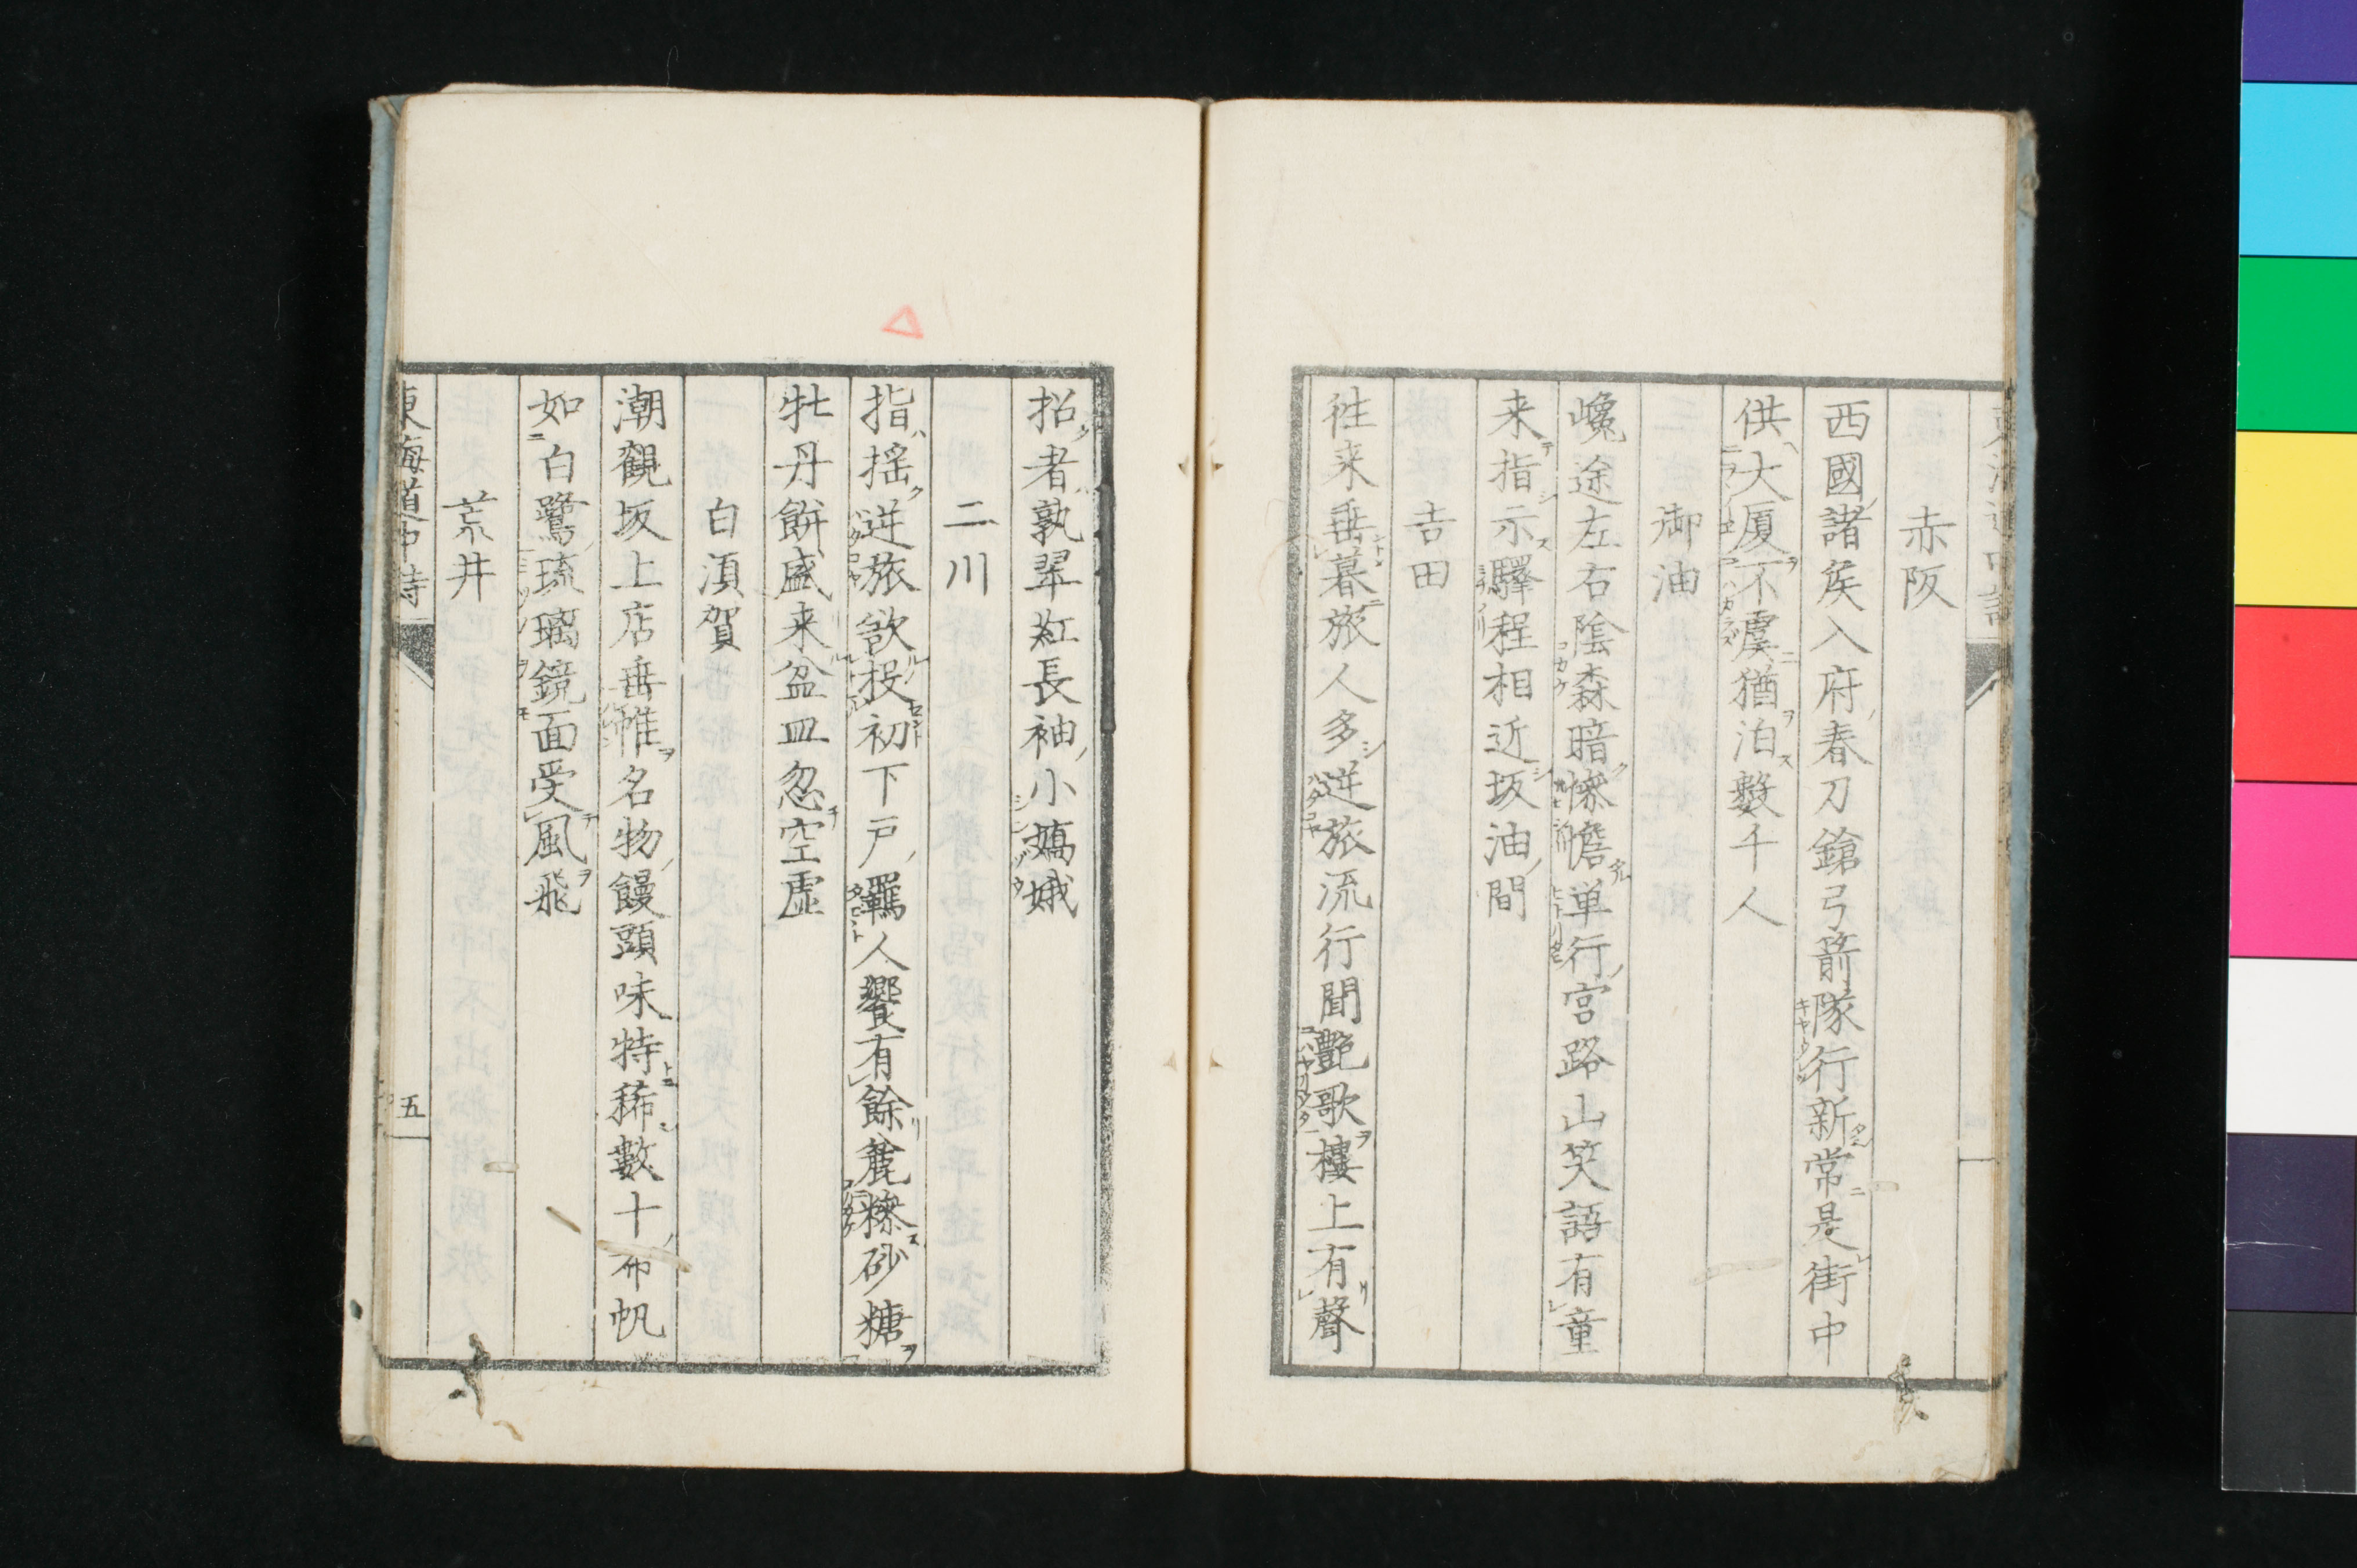 赤阪
西國諸矦入府春刀鎗弓箭隊行新常是街中
供大厦不虞猶泊數千人
御油
巉途左右陰森暗慘憺単行宮路山笑語有童
来指示驛程相近坂油間
吉田
徃来垂暮旅人多逆旅流行聞艶歌樓上有聲
招者孰翠紅長袖小嬌娥
二川
指揺逆旅欲投初下戸羈人饗有餘麁糝砂糖
牡丹餅盛来盆皿忽空虚
白湏賀
潮觀坂上店垂帷名物饅頭味特稀數十布帆
如白鷺琉璃鏡面受風飛
荒井
東海道中詩
五